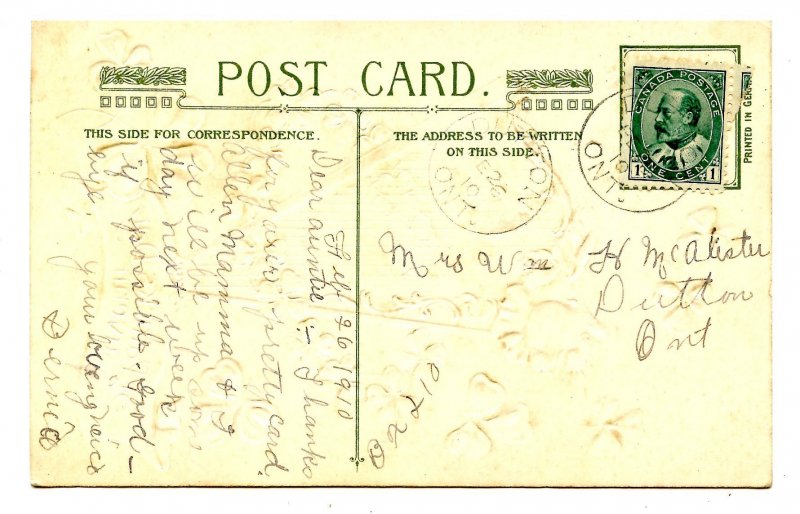 POST CARD.
THIS SIDE FOR CORRESPONDENCE.
THE ADDRESS TO BE WRITTEN
ON THIS SIDE.
PRINTED IN GER
CANADA POSTAGE
ONE CENT
1 1
DUTTON
FE 26
10
ONT.
ONT.
Feb 26 1910
Dear auntie :- Thanks
for your pretty card.
Ellen Mamma & I
will be up on
day next week
if possible. Good-
bye. your loving neice
Bernia
Mrs Wm H McAlister
Dutton
Ont